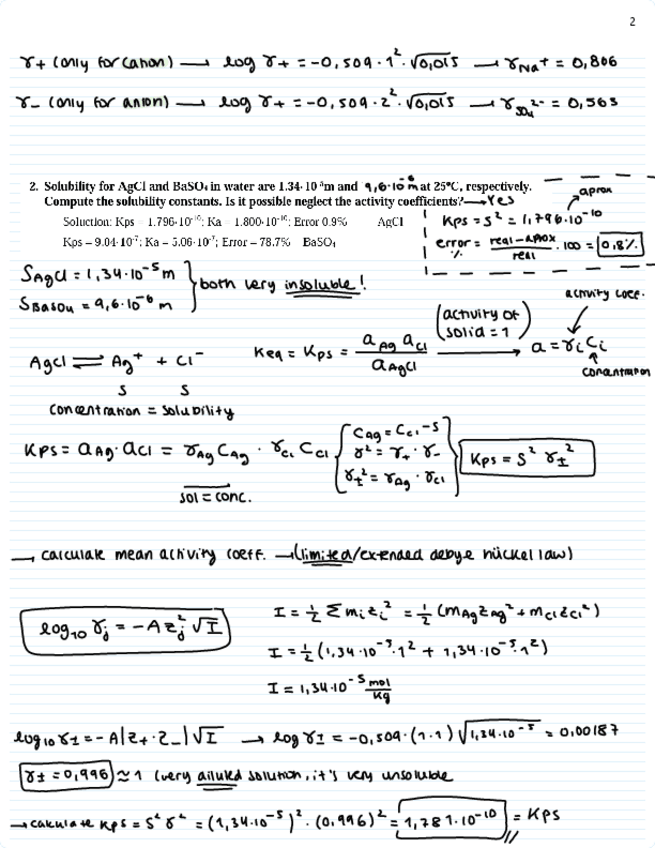 2
γ+ (only for cation) → log γ+ = -0,509 · 1² · √0,015 → γNa+ = 0,866
γ- (only for anion) → log γ+ = -0,509 · 2² · √0,015 → γSO4²⁻ = 0,563
2. Solubility for AgCl and BaSO₄ in water are 1.34· 10⁻⁵m and 9,6·10⁻⁶ m at 25°C, respectively.
Compute the solubility constants. Is it possible neglect the activity coefficients? → Yes
Soluction: Kps = 1.796·10⁻¹⁰; Ka = 1.800·10⁻¹⁰; Error 0.9% AgCl
Kps = 9.04·10⁻⁷; Ka = 5.06·10⁻⁷; Error = 78.7% BaSO₄
aprox
Kps = s² = 1,796·10⁻¹⁰
error % = (real - aprox)/real · 100 = 0,8%
SAgCl = 1,34·10⁻⁵ m
SBaSO4 = 9,6·10⁻⁶ m
} both very insoluble!
activity coef.
AgCl ⇌ Ag⁺ + Cl⁻
S S
Keq = Kps = (aAg aCl)/aAgCl (activity of solid = 1) → a = γi Ci
concentration
concentration = solubility
Kps = aAg · aCl = γAg CAg · γCl CCl { CAg = CCl = S
γ² = γ+ · γ-
γ±² = γAg · γCl } Kps = S² γ±²
sol = conc.
→ calculate mean activity coeff. → (limited/extended debye hückel law)
log₁₀ γj = -A zj² √I
I = ½ Σ mi zi² = ½ (mAg zAg² + mCl zCl²)
I = ½ (1,34·10⁻⁵·1² + 1,34·10⁻⁵·1²)
I = 1,34·10⁻⁵ mol/kg
log₁₀ γ± = -A|z+·z-|√I → log γ± = -0,509·(1·1) √1,34·10⁻⁵ = 0,00187
γ± = 0,996 ≈ 1 (very diluted solution, it's very unsoluble
→ calculate Kps = S² γ² = (1,34·10⁻⁵)² · (0,996)² = 1,781·10⁻¹⁰ = Kps